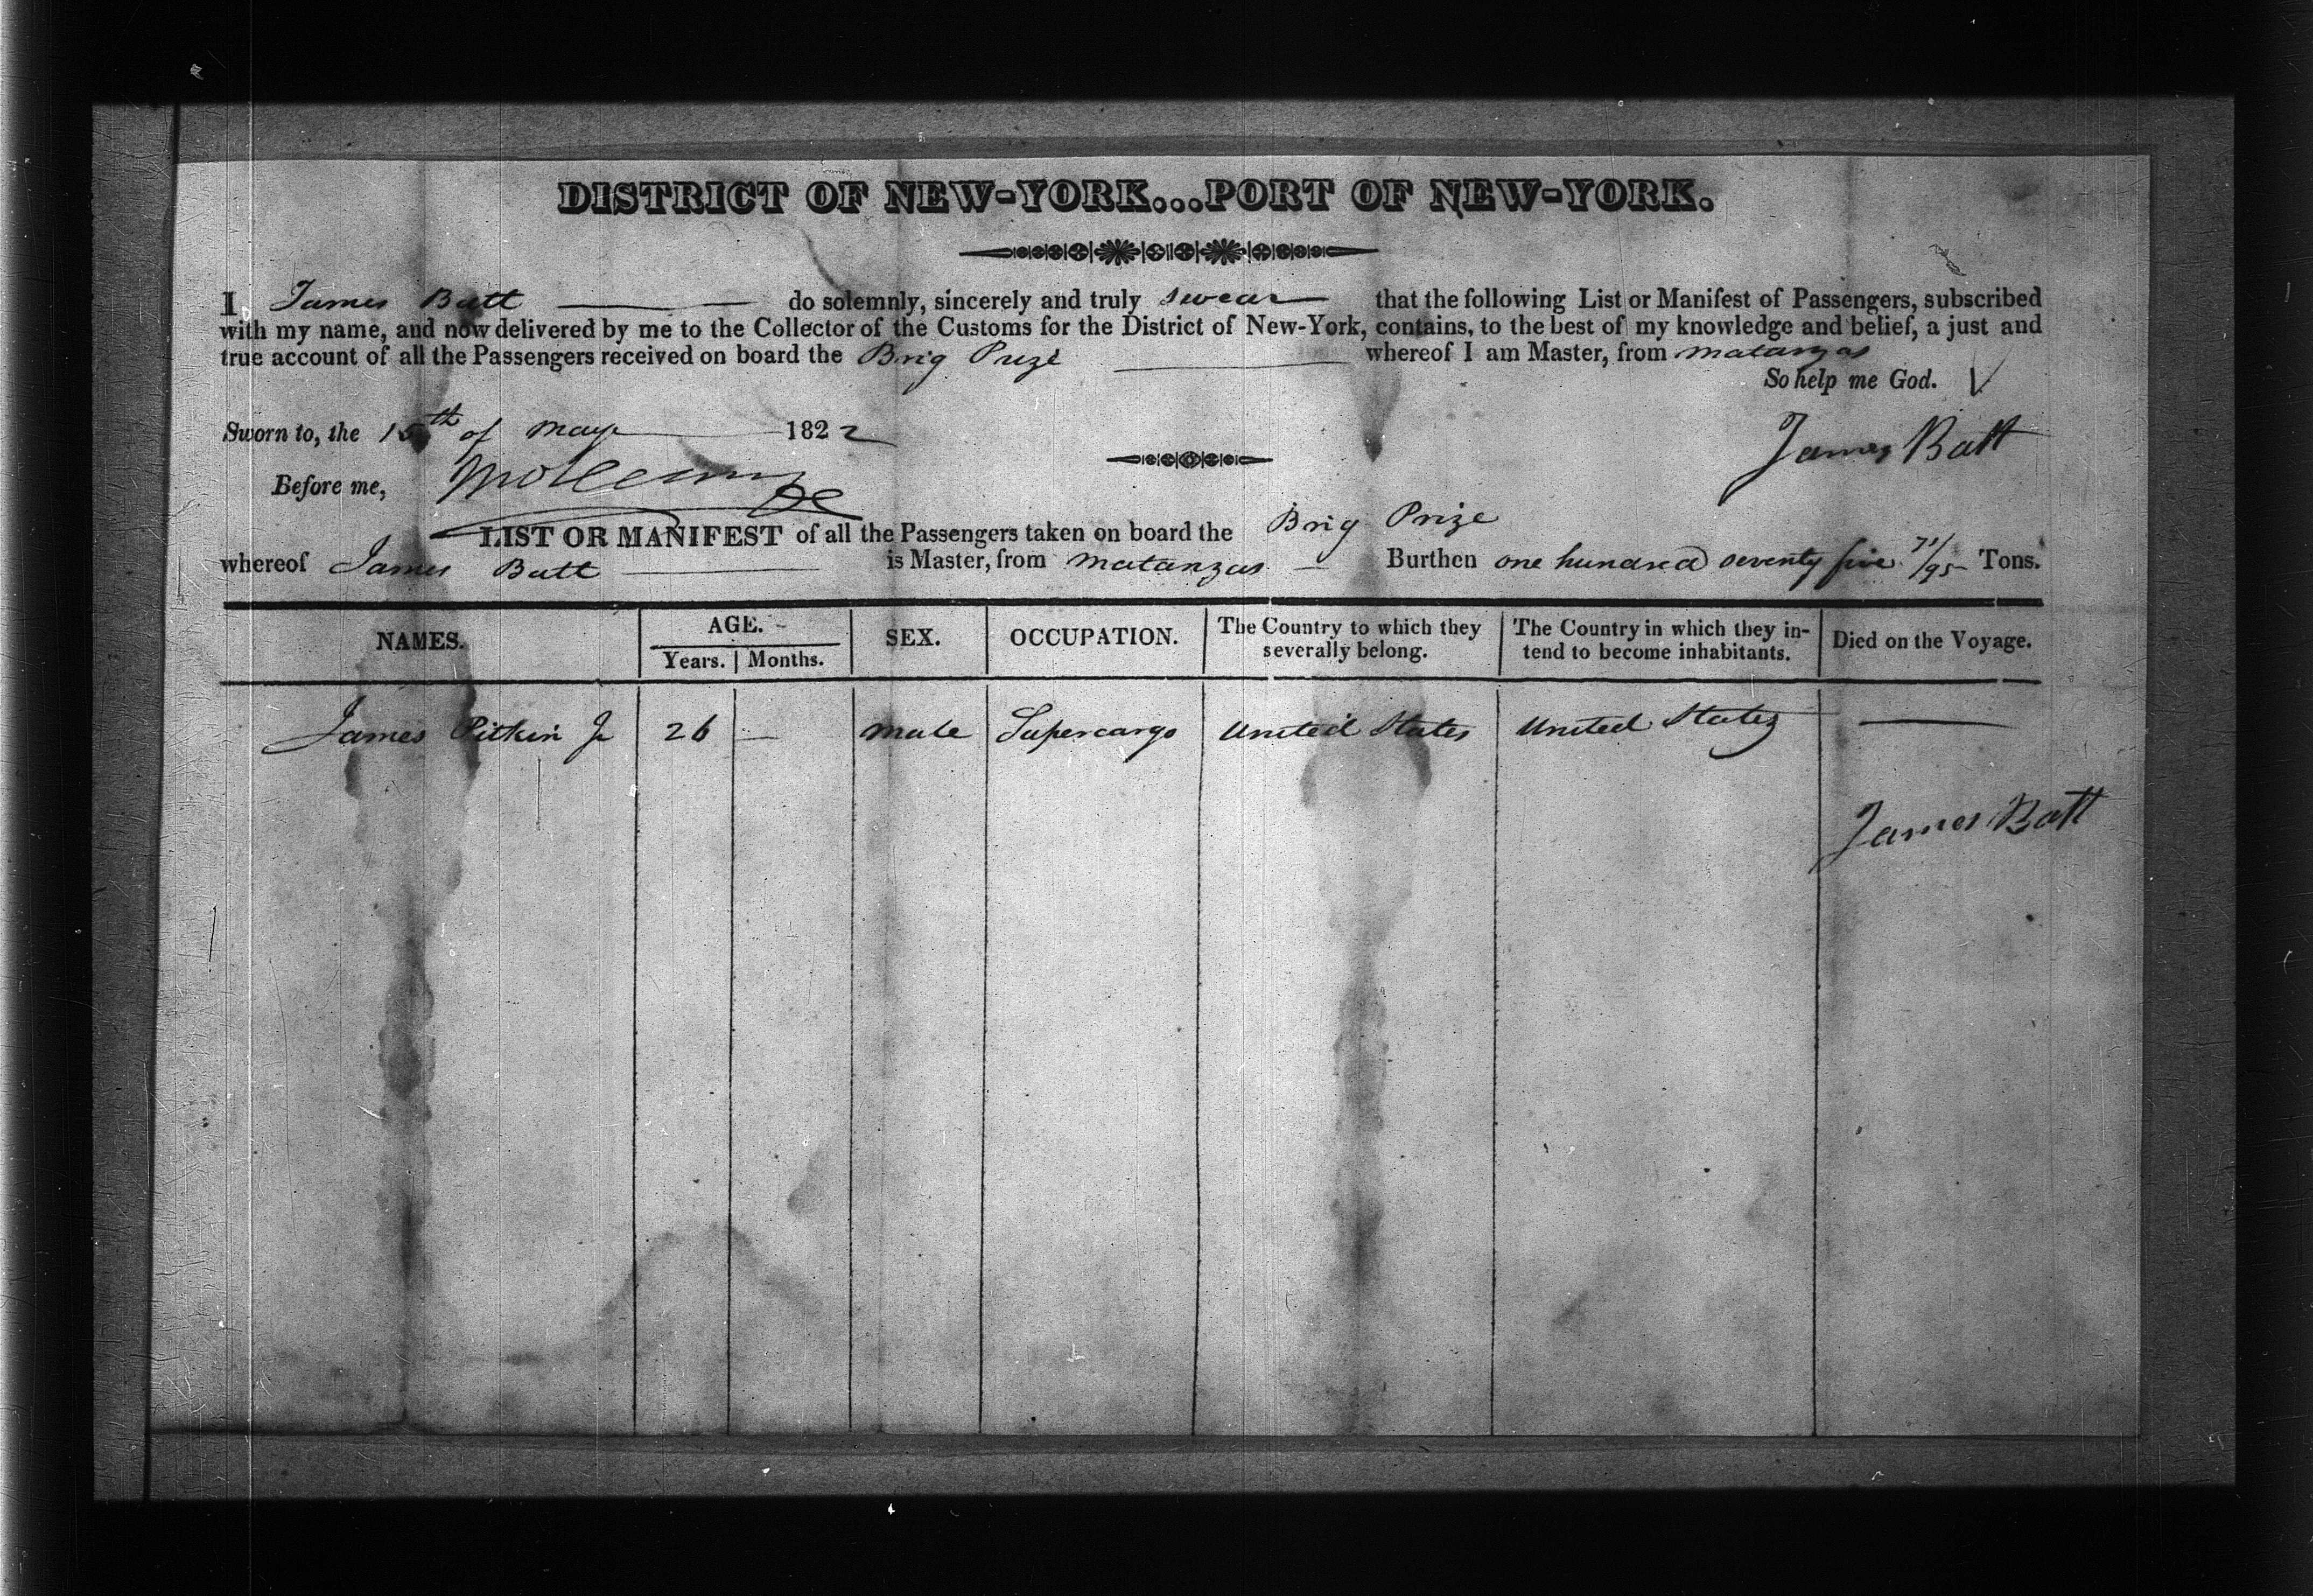 DISTRICT OF NEW-YORK...PORT OF NEW-YORK.
I James Batt do solemnly, sincerely and truly swear that the following List or Manifest of Passengers, subscribed
with my name, and now delivered by me to the Collector of the Customs for the District of New-York, contains, to the best of my knowledge and belief, a just and
true account of all the Passengers received on board the Brig Prize whereof I am Master, from matanzas
So help me God.
Sworn to, the 15th of May 1822
James Batt
Before me,
LIST OR MANIFEST of all the Passengers taken on board the Brig Prize
whereof James Batt is Master, from matanzas Burthen one hundred seventy five 71/95 Tons.
NAMES. AGE. SEX. OCCUPATION. The Country to which they severally belong. The Country in which they in-tend to become inhabitants. Died on the Voyage.
Years. Months.
James Pitkin Jr 26 — male Supercargo United States United States —
James Batt